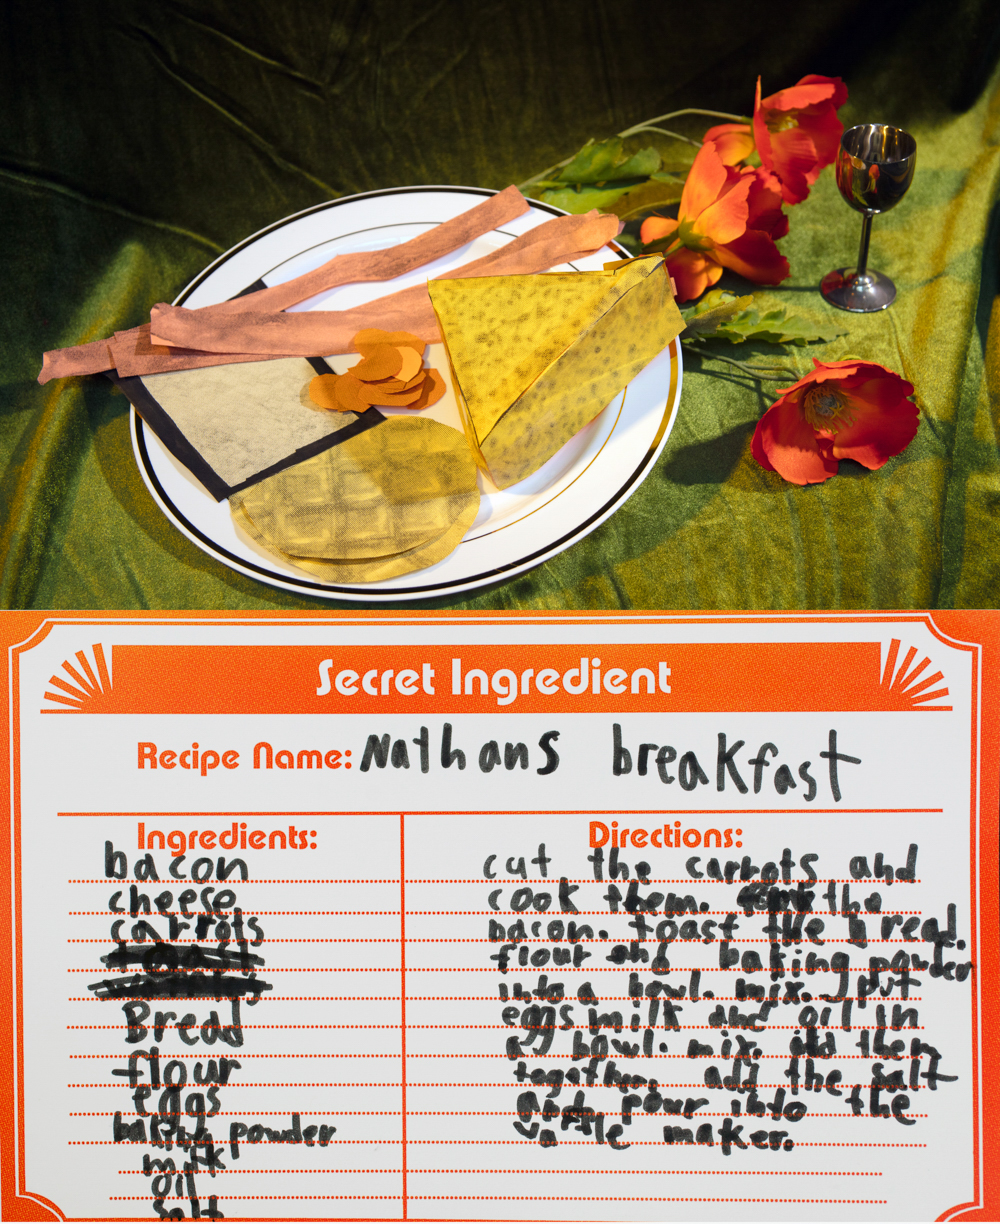 Secret Ingredient
Recipe Name: Nathans breakfast
Ingredients:
bacon
cheese
carrots
Bread
flour
eggs
baking powder
milk
oil
salt
Directions:
cut the carrots and
cook them. the
bacon. toast the bread.
flour and baking powder
into a bowl. mix. put
eggs milk and oil in
a bowl. mix. them
together. add the salt
pour into the
maker.